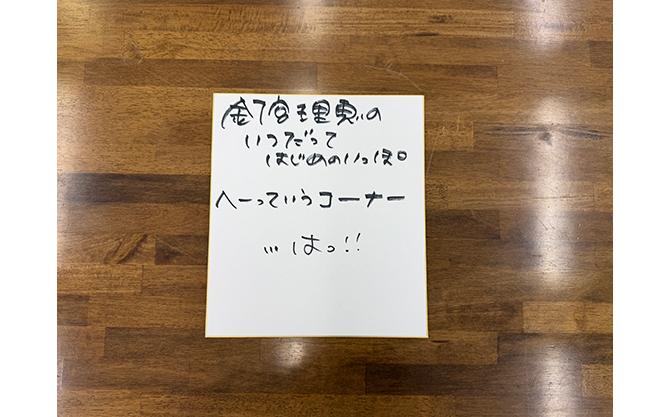 釘宮理恵の
いつだって
はじめのいっぽ
へーっていうコーナー
…はっ!!